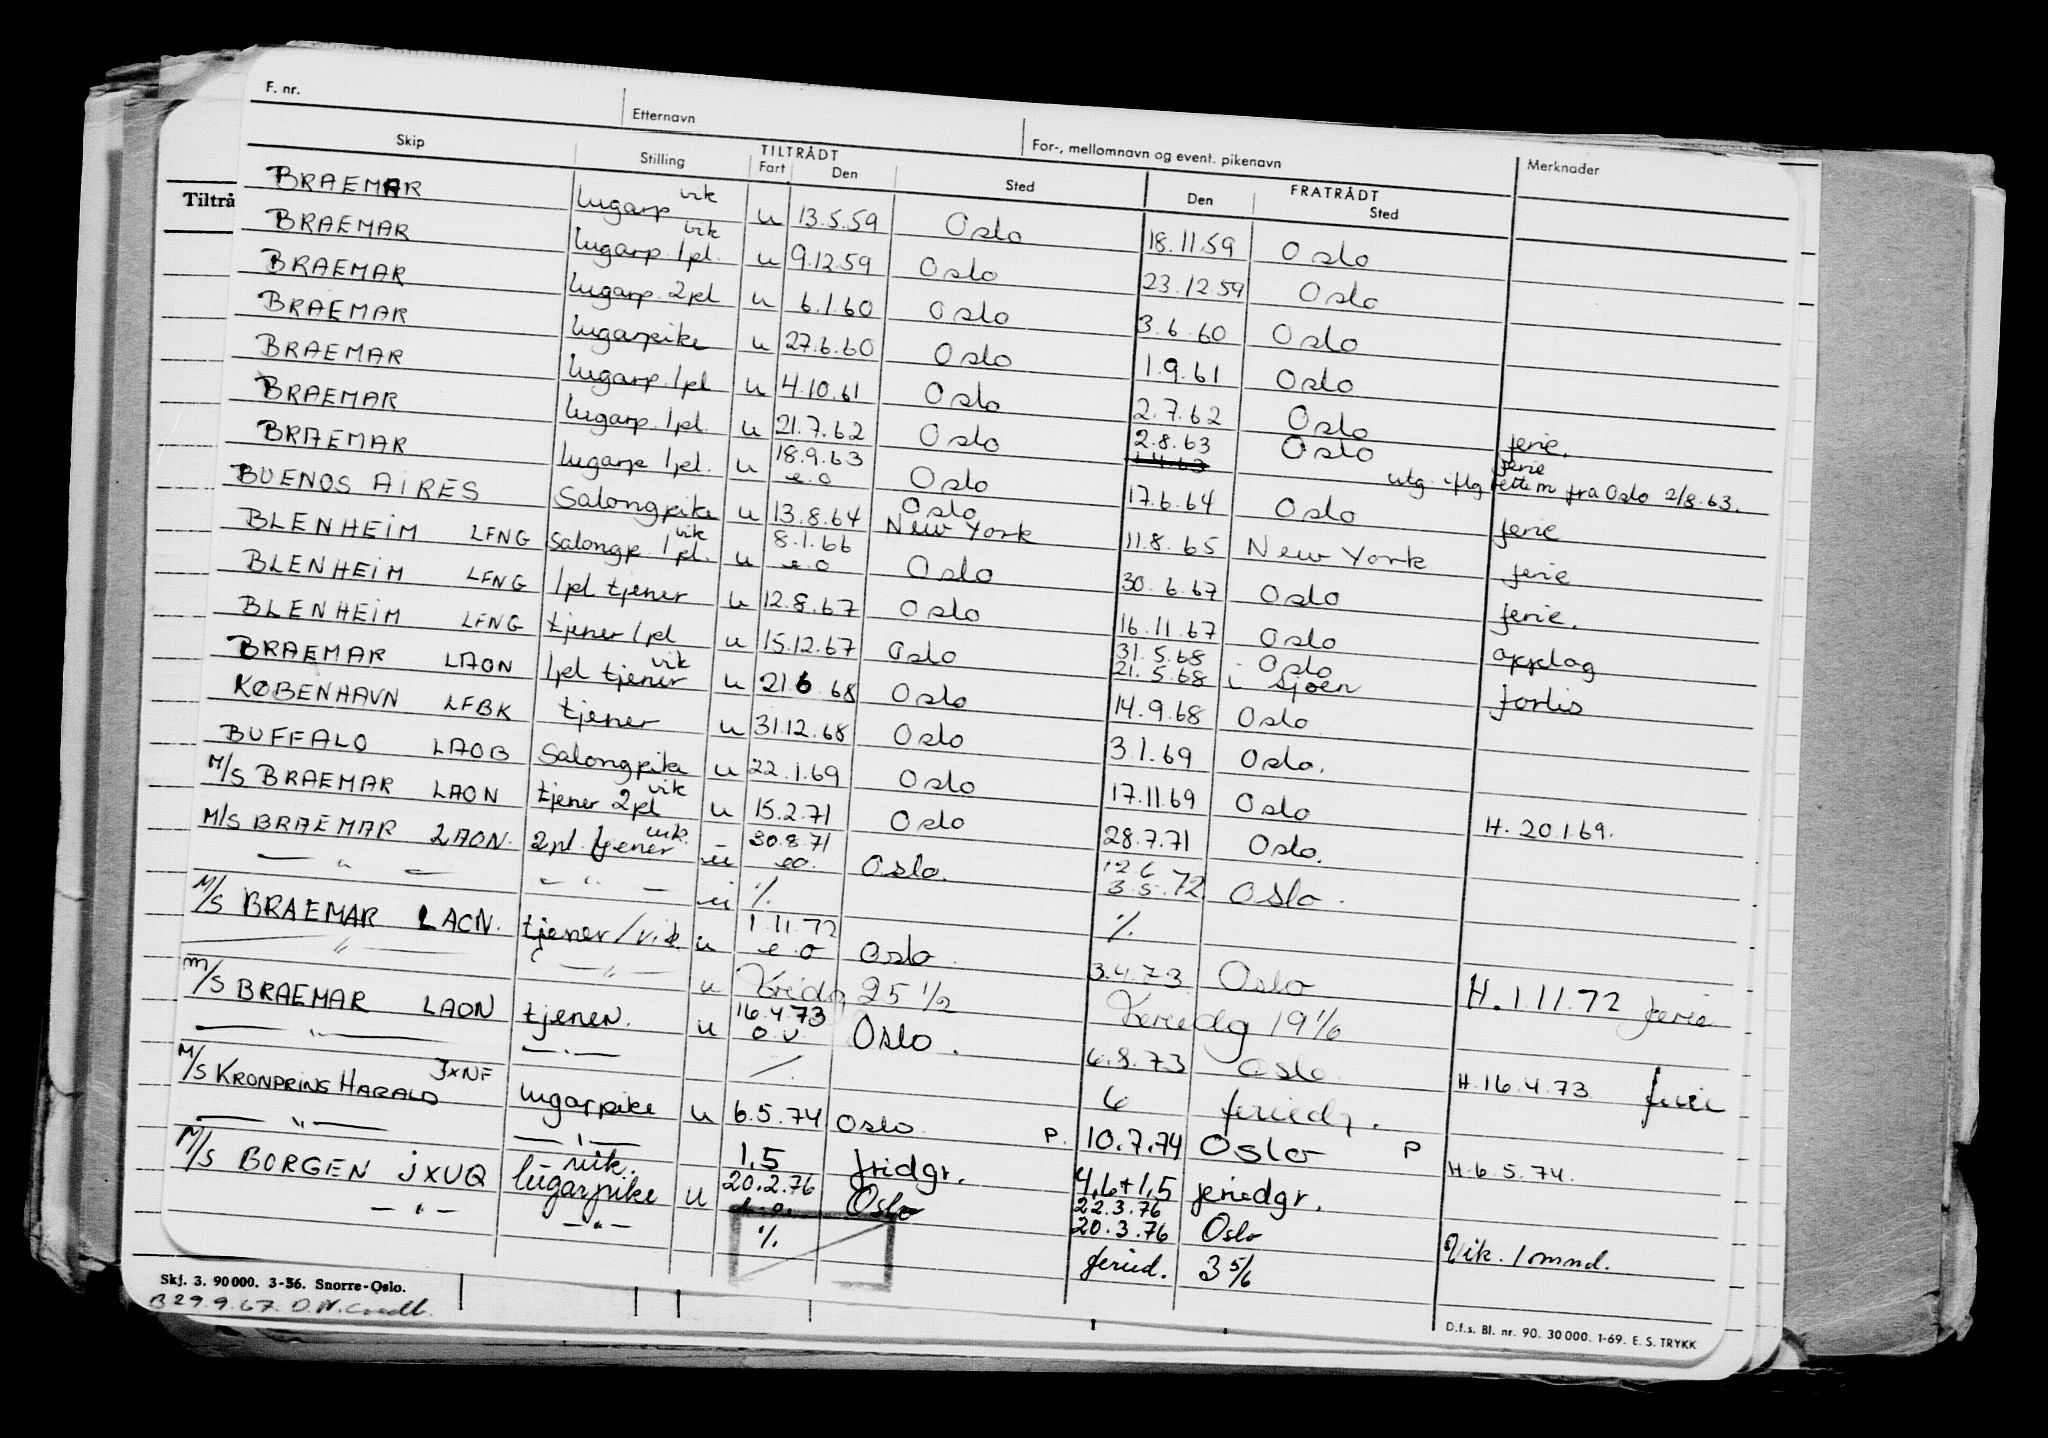 F. nr. Etternavn For-, mellomnavn og event. pikenavn Merknader
Skip Stilling TILTRÅDT Fart Den Sted FRATRÅDT Den Sted
Tiltrå
BRAEMAR lugarp vik u 13.5.59 Oslo 18.11.59 Oslo
BRAEMAR lugarp. 1pl. vik u 9.12.59 Oslo 23.12.59 Oslo
BRAEMAR lugarp. 2pl u 6.1.60 Oslo 3.6.60 Oslo
BRAEMAR lugarpike u 27.6.60 Oslo 1.9.61 Oslo
BRAEMAR lugarp. 1pl u 4.10.61 Oslo 2.7.62 Oslo ferie.
BRAEMAR lugarp. 1pl. u 21.7.62 Oslo 2.8.63 Oslo ferie
utg. iflg rettem fra Oslo 2/8.63.
BRAEMAR lugarp 1pl. u 18.9.63 e.o Oslo 17.6.64 Oslo ferie
BUENOS AIRES Salongpike u 13.8.64 Oslo 11.8.65 New York ferie
BLENHEIM LFNG Salongp. 1pl. vik u 8.1.66 e.o New York Oslo 30.6.67 Oslo ferie.
BLENHEIM LFNG 1pl tjener u 12.8.67 Oslo 16.11.67 Oslo opplag
BLENHEIM LFNG tjener 1pl u 15.12.67 Oslo 31.5.68 Oslo
21.5.68 i Sjøen forlis
BRAEMAR LAON 1pl tjener vik u 21.6.68 Oslo 14.9.68 Oslo
KØBENHAVN LFBK tjener u 31.12.68 Oslo 3.1.69 Oslo.
BUFFALO LAOB Salongpike u 22.1.69 Oslo 17.11.69 Oslo H. 20.1.69.
M/S BRAEMAR LAON tjener 2pl vik u 15.2.71 Oslo 28.7.71 Oslo.
M/S BRAEMAR LAON. 2pl. tjener vik. u 30.8.71 eo. Oslo. 12.6
3.5.72 Oslo.
— " — — " — u % %
M/S BRAEMAR LAON. tjener/vik u 1.11.72 e.o Oslo. 3.4.73 Oslo H. 1.11.72 ferie
" — " — u 25 1/2 Feriedg 19 1/6
M/S BRAEMAR LAON tjener. u 16.4.73 Oslo. 6.8.73 Oslo H. 16.4.73 ferie
— " — — " — 6 feriedg.
M/S KRONPRINS HARALD JXNF lugarpike u 6.5.74 Oslo P. 10.7.74 Oslo P H. 6.5.74.
— " — — " — 1,5 fridgr. 4,6+1,5 feriedgr.
M/S BORGEN JXUQ lugarpike vik. u 20.2.76 e.o. Oslo 22.3.76
20.3.76 Oslo Vik. 1 mnd.
— " — — " — % feried. 3 5/6
Skj. 3. 90000. 3-56. Snorre-Oslo.
B 29.9.67
D.f.s. Bl. nr. 90. 30000. 1-69. E. S. TRYKK